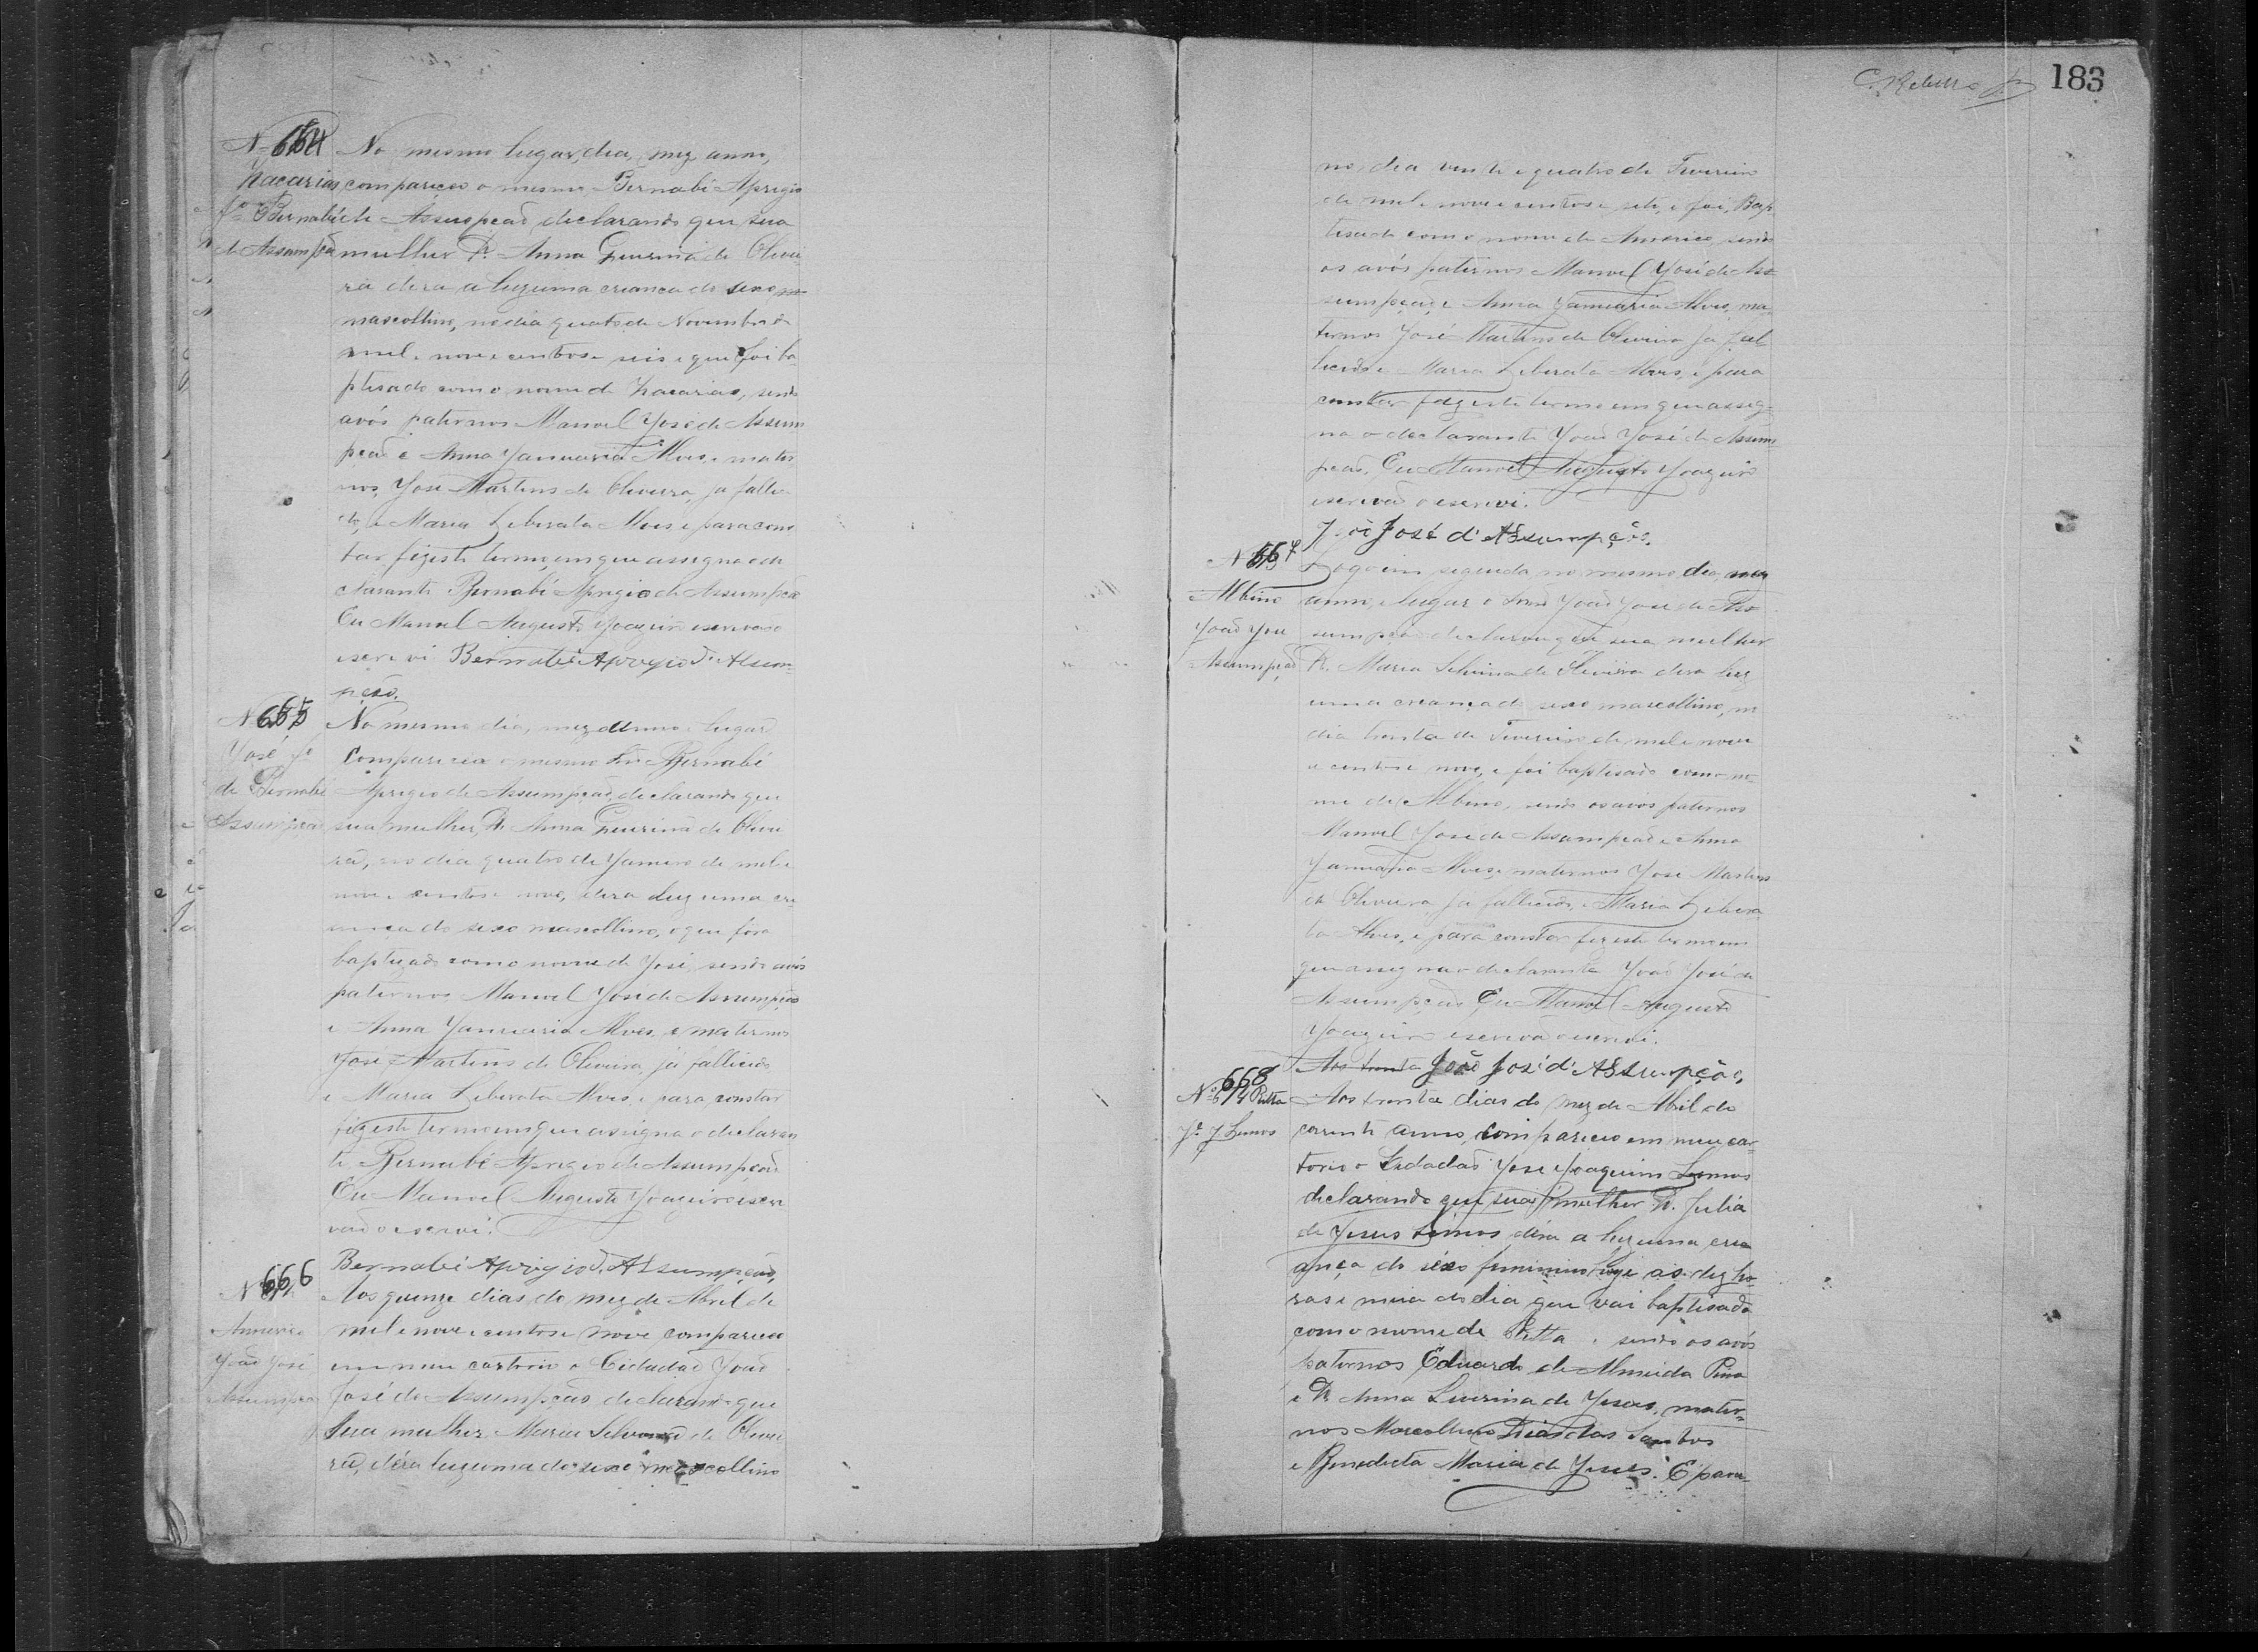 N 664
Zacarias
fº Bernabé
de Assumpção
No mesmo lugar, dia, mez, anno,
compareceo o mesmo Bernabé Aprigio
de Assumpção, declarando que sua
mulher D. Anna de Olivei
ra dera a luz uma creança do sexo
mascollino, no dia quatro de Novembro de
mil e nove centos e seis e que foi ba
ptisado com o nome de Zacarias, sendo
avós paternos Manoel José de Assum
pção e Anna Januaria Alves e mater
nos, José Martins de Oliveira, ja falle
do, e Maria Liberata Alves e para cons
tar fiz este termo, em que assigna o de
clarante Bernabé Aprigio de Assumpção
Eu Manoel Augusto Joaquim escrivão
escrevi Bernabé Aprygio d'Assum-
pção.
N 665
José fº
de Bernabé
Assumpção
No mesmo dia, mez e anno e lugar
Compareceu o mesmo Snr Bernabé
Aprigio de Assumpção, declarando que
sua mulher D. Anna de Olivei
ra, no dia quatro de Janeiro de mil e
nove centos e nove, dera a luz uma cre
ança do sexo mascollino, e que fora
baptizado com o nome de José, sendo avós
paternos Manoel José de Assumpção
e Anna Januaria Alves, e maternos
José Martins de Oliveira, já fallicido
e Maria Liberata Alves, e para constar
fiz este termo em que assigna o declaran
te Bernabé Aprigio de Assumpção
Eu Manoel Augusto Joaquim escri
vão o escrevi.
Bernabé Aprygio d'Assumpção,
N 666
Americo
João José
Assumpção
Aos quinze dias do mez de Abril de
mil e nove centos e nove compareceo
em meu cartorio o Cidadão João
José de Assumpção declarando que
sua mulher Maria Silvina de Olivei
ra, déra luz uma do sexo mascollino
183
no dia vinte e quatro de Fevereiro
de mil e nove centos e sete, e foi Bap
tisado com o nome de Americo, sendo
os avós paternos Manoel José de As
sumpção e Anna Januaria Alves, ma
ternos José Martins de Oliveira ja fal
lecido e Maria Liberata Alves, e para
constar faz este termo em que assig-
na o declarante João José de Assum
pção. Eu Manoel Augusto Joaquim
escrivão o escrevi.
João José d'Assumpção.
N 667
Albino
João José
Assumpção
Logo em seguida no mesmo dia, mez
anno, e lugar o Snr João José de As
sumpção declarou que sua mulher
D. Maria Silvina de Oliveira dera luz
uma creança do sexo mascollino, no
dia trinta de Fevereiro de mil e nove
e centos e nove, e foi baptisado com o no-
me de Albino, sendo os avós paternos
Manoel José de Assumpção e Anna
Januaria Alves, e maternos José Martins
de Oliveira ja fallicido, e Maria Libera
ta Alves, e para constar fiz este termo em
que assigna o declarante João José de
Assumpção Eu Manoel Augusto
Joaquim escrivão o escrevi.
Aos trinta João José d'Assumpção,
668
Nº 614
Jº J. Lemos
Aos trinta dias do mez de Abril do
corrente anno, compareceo em meu car-
torio o Cidadão José Joaquim Lemos
declarando que sua mulher D. Julia
de Jesus Lemos déra a luz uma cre
ança do sexo feminino hoje as dez ho-
ras e meia do dia que vai baptisada
com o nome de sendo os avós
paternos Eduardo de Almeida
e D. Anna de Jesus, mater-
nos Marcollino Dias dos Santos
e Benedicta Maria de Jesus. E para